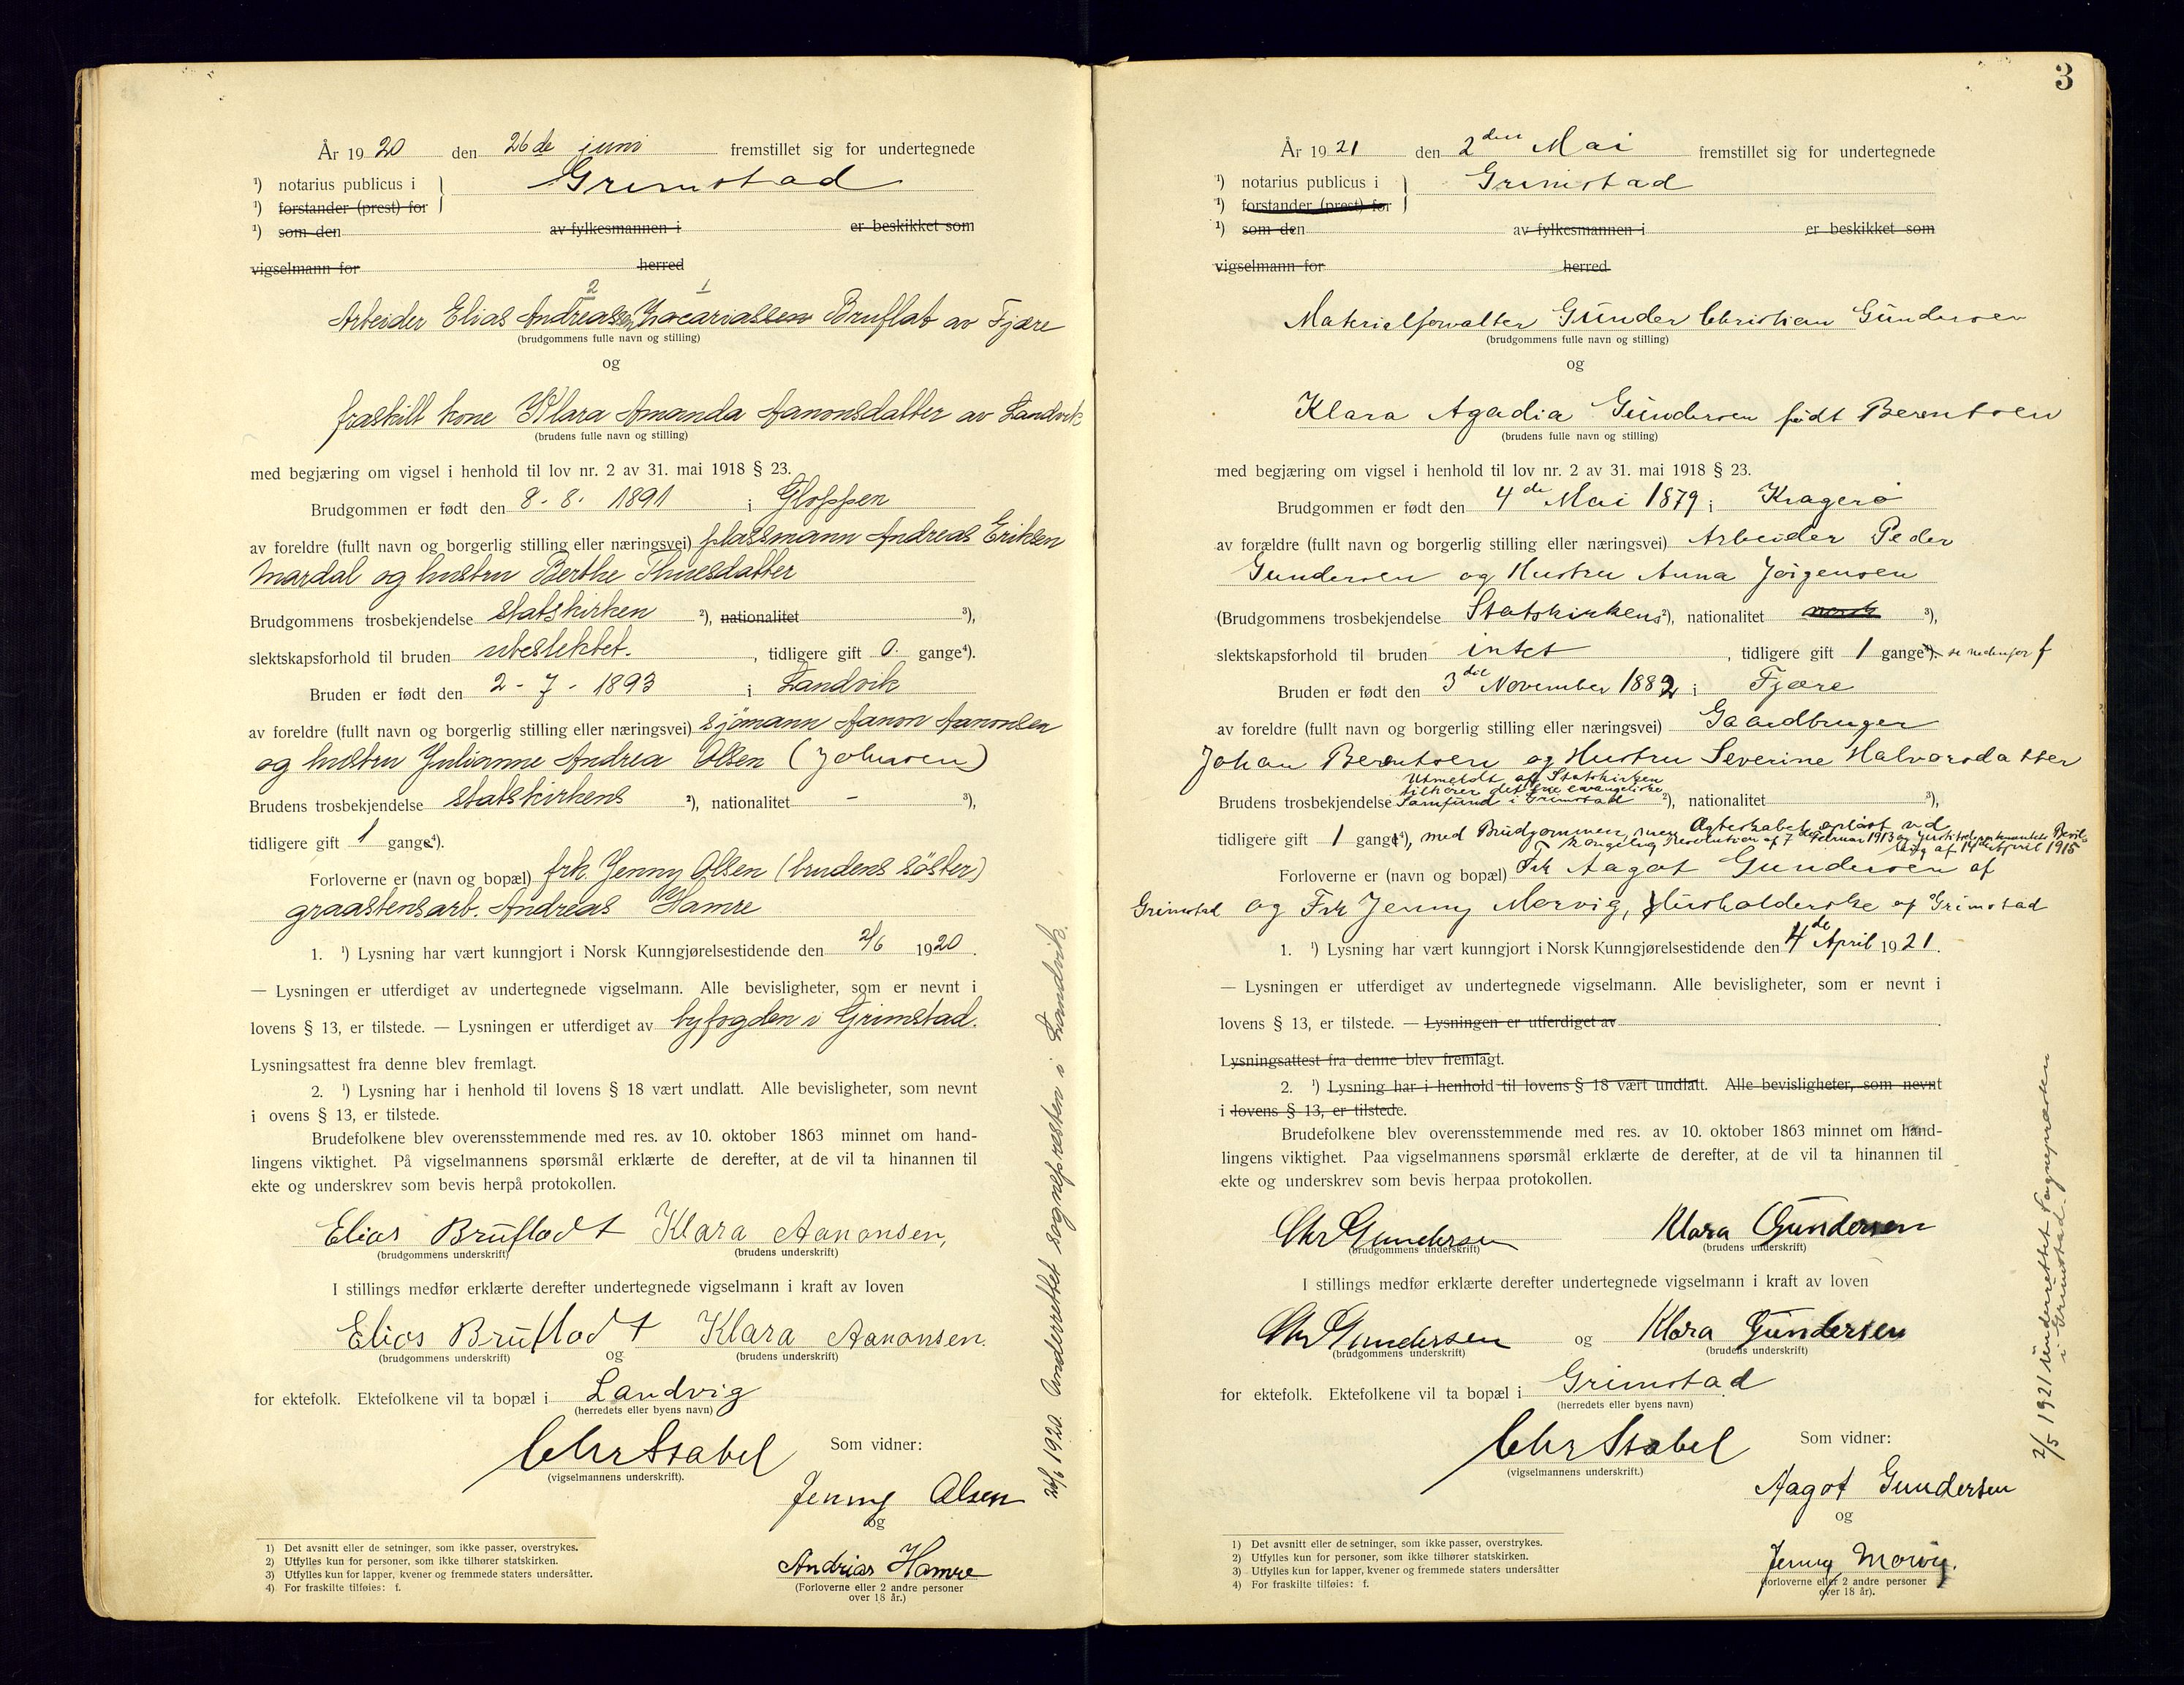 År 1920 den 26de juni fremstillet sig for undertegnede
¹) notarius publicus i Grimstad
¹) forstander (prest) for
¹) som den av fylkesmannen i er beskikket som
vigselmann for herred
2 1
Arbeider Elias Andreassen Zacariassen Bruflat av Fjære
(brudgommens fulle navn og stilling)
og
fraskilt kone Klara Amanda Aanonsdatter av Landvik
(brudens fulle navn og stilling)
med begjæring om vigsel i henhold til lov nr. 2 av 31. mai 1918 § 23.
Brudgommen er født den 8. 8. 1891 i Gloppen
av foreldre (fullt navn og borgerlig stilling eller næringsvei) plassmann Andreas Eriksen
Mardal og hustru Berthe Thuesdatter
Brudgommens trosbekjendelse statskirken ²), nationalitet ³),
slektskapsforhold til bruden ubeslektet. , tidligere gift 0. gange⁴).
Bruden er født den 2 - 7 - 1893 i Landvik
av foreldre (fullt navn og borgerlig stilling eller næringsvei) sjømann Aanon Aanonsen
og hustru Julianne Andrea Olsen (Johnsen)
Brudens trosbekjendelse statskirkens ²), nationalitet - ³),
tidligere gift 1 gange⁴).
Forloverne er (navn og bopæl) frk. Jenny Olsen (brudens søster)
graastensarb. Andreas Hamre
1. ¹) Lysning har vært kunngjort i Norsk Kunngjørelsestidende den 2/6 1920.
— Lysningen er utferdiget av undertegnede vigselmann. Alle bevisligheter, som er nevnt i
lovens § 13, er tilstede. — Lysningen er utferdiget av byfogden i Grimstad.
Lysningsattest fra denne blev fremlagt.
2. ¹) Lysning har i henhold til lovens § 18 vært undlatt. Alle bevisligheter, som nevnt
i ovens § 13, er tilstede.
Brudefolkene blev overensstemmende med res. av 10. oktober 1863 minnet om hand-
lingens viktighet. På vigselmannens spørsmål erklærte de derefter, at de vil ta hinannen til
ekte og underskrev som bevis herpå protokollen.
Elias Bruflodt Klara Aanonsen,
(brudgommens underskrift) (brudens underskrift)
I stillings medfør erklærte derefter undertegnede vigselmann i kraft av loven
Elias Bruflodt Klara Aanonsen.
(brudgommens underskrift) og (brudens underskrift)
for ektefolk. Ektefolkene vil ta bopæl i Landvig
(herredets eller byens navn)
Chr Stabel Som vidner:
(vigselmannens underskrift).
Jenny Olsen
og
Andrias Hamre
(Forloverne eller 2 andre personer
over 18 år.)
1) Det avsnitt eller de setninger, som ikke passer, overstrykes.
2) Utfylles kun for personer, som ikke tilhører statskirken.
3) Utfylles kun for lapper, kvener og fremmede staters undersåtter.
4) For fraskilte tilføies: f.
26/6 1920. Underrettet sogneprästen i Landvik.
3
År 1921 den 2den Mai fremstillet sig for undertegnede
¹) notarius publicus i Grimstad
¹) forstander (prest) for
¹) som den av fylkesmannen i er beskikket som
vigselmann for herred
Materialforvalter Günder Christian Gündersen
(brudgommens fulle navn og stilling)
og
Klara Agadia Gündersen født Berentsen
(brudens fulle navn og stilling)
med begjæring om vigsel i henhold til lov nr. 2 av 31. mai 1918 § 23.
Brudgommen er født den 4de Mai 1879 i Kragerø
av forældre (fullt navn og borgerlig stilling eller næringsvei) Arbeider Peder
Gundersen og Hustru Anna Jörgensen
(Brudgommens trosbekjendelse Statskirkens ²), nationalitet norsk ³),
slektskapsforhold til bruden intet , tidligere gift 1 gange⁴). se nedenfor f
Bruden er født den 3die November 1882 i Fjære
av foreldre (fullt navn og borgerlig stilling eller næringsvei) Gaardbruger
Johan Berentsen og Hustru Severine Halvorsdatter
Utmeldt af Statskirken
tilhører det frie evangeliske
Brudens trosbekjendelse Samfund i Grimstad ²), nationalitet ³),
tidligere gift 1 gang⁴), med Brudgommen, men Ægteskabet opløst ved
kongelig Resolution af 7de Februar 1913 og Justitsdepartementets Bevil-
ling af 14de April 1915
Forloverne er (navn og bopæl) Frk Aagot Gundersen af
Grimstad og Frk Jenny Morvig, Husholderske af Grimstad
1. ¹) Lysning har vært kunngjort i Norsk Kunngjørelsestidende den 4de April 1921.
— Lysningen er utferdiget av undertegnede vigselmann. Alle bevisligheter, som er nevnt i
lovens § 13, er tilstede. — Lysningen er utferdiget av
Lysningsattest fra denne blev fremlagt.
2. ¹) Lysning har i henhold til lovens § 18 vært undlatt. Alle bevisligheter, som nevnt
i lovens § 13, er tilstede.
Brudefolkene blev overensstemmende med res. av 10. oktober 1863 minnet om hand-
lingens viktighet. Paa vigselmannens spørsmål erklærte de derefter, at de vil ta hinannen til
ekte og underskrev som bevis herpaa protokollen.
Chr Gundersen Klara Gundersen
(brudgommens underskrift) (brudens underskrift)
I stillings medfør erklærte derefter undertegnede vigselmann i kraft av loven
Chr Gundersen og Klara Gündersen
(brudgommens underskrift) (brudens underskrift)
for ektefolk. Ektefolkene vil ta bopæl i Grimstad
(herredets eller byens navn)
Chr Stabel Som vidner:
(vigselmannens underskrift.)
Aagot Gundersen
og
Jenny Morvig.
(forloverne eller 2 andre personer
over 18 år).
1) Det avsnitt eller de setninger, som ikke passer, overstrykes.
2) Utfylles kun for personer, som ikke tilhører statskirken.
3) Utfylles kun for lapper, kvener og fremmede staters undersåtter
4) For fraskilte tilføies: f.
2/5 1921 ünderrettet Sognepræsten
i Grimstad.